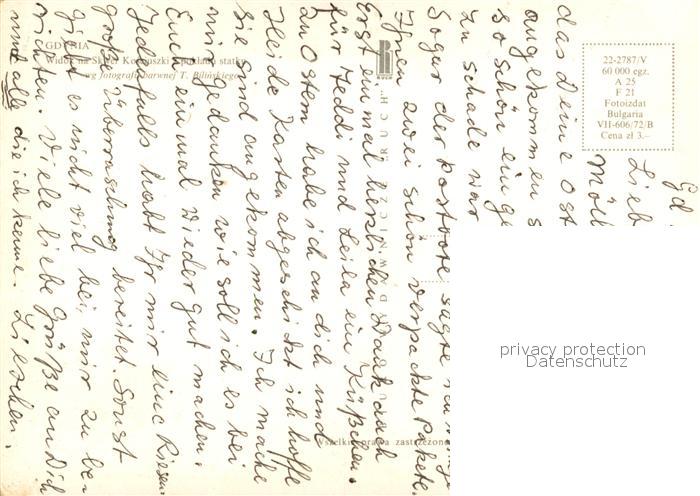 GDYNIA
Widok na Skwer Kościuszki i pokład statku
wg fotografii barwnej T. Bilińskiego
22-2787/V
60 000 egz.
A 25
F 21
Fotoizdat
Bulgaria
VII-606/72/B
Cena zł 3.—
RUCH
Wszelkie prawa zastrzeżone
privacy protection
Datenschutz
Gd
Lieb
Möch
das Deine Ost
angekommen s
so schön einge
zu schade war
Sogar der Postbote sagte
Ihnen zwei schön verpackte Pakete.
Erst einmal herzlichen Dank auch
für Teddi und Leila ein Küßchen.
Zu Ostern habe ich an dich und
Heide Karten abgeschickt ich hoffe
sie sind angekommen. Ich mache
mir gedanken wie soll ich es bei
Euch einmal wieder gut machen.
Jedenfalls habt Ihr mir eine Riesen
große überraschung bereitet. Sonst
gibt es nicht viel bei mir zu be-
richten. Viele liebe Grüße an Dich
und alle die ich kenne. Lieschen.